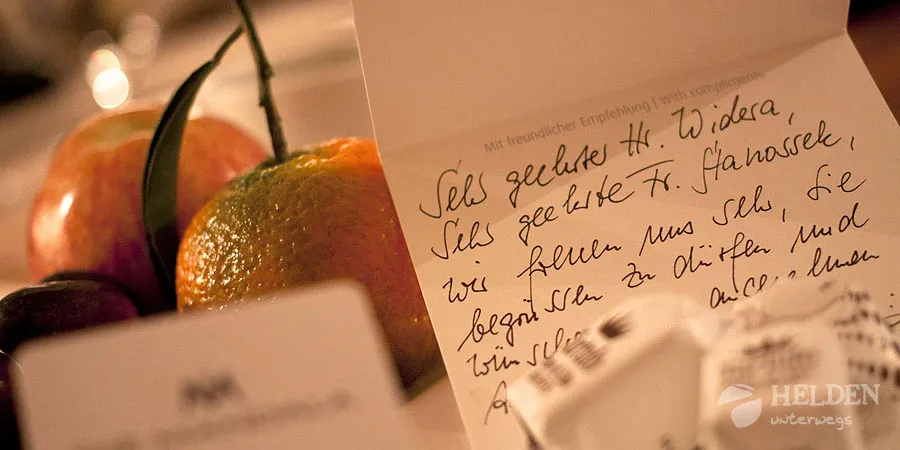 Mit freundlicher Empfehlung | With compliments
Sehr geehrter Hr. Widera,
Sehr geehrte Fr. Stanossek,
wir freuen uns sehr, Sie
begrüssen zu dürfen und
wünschen angenehmen
A
HELDEN
unterwegs